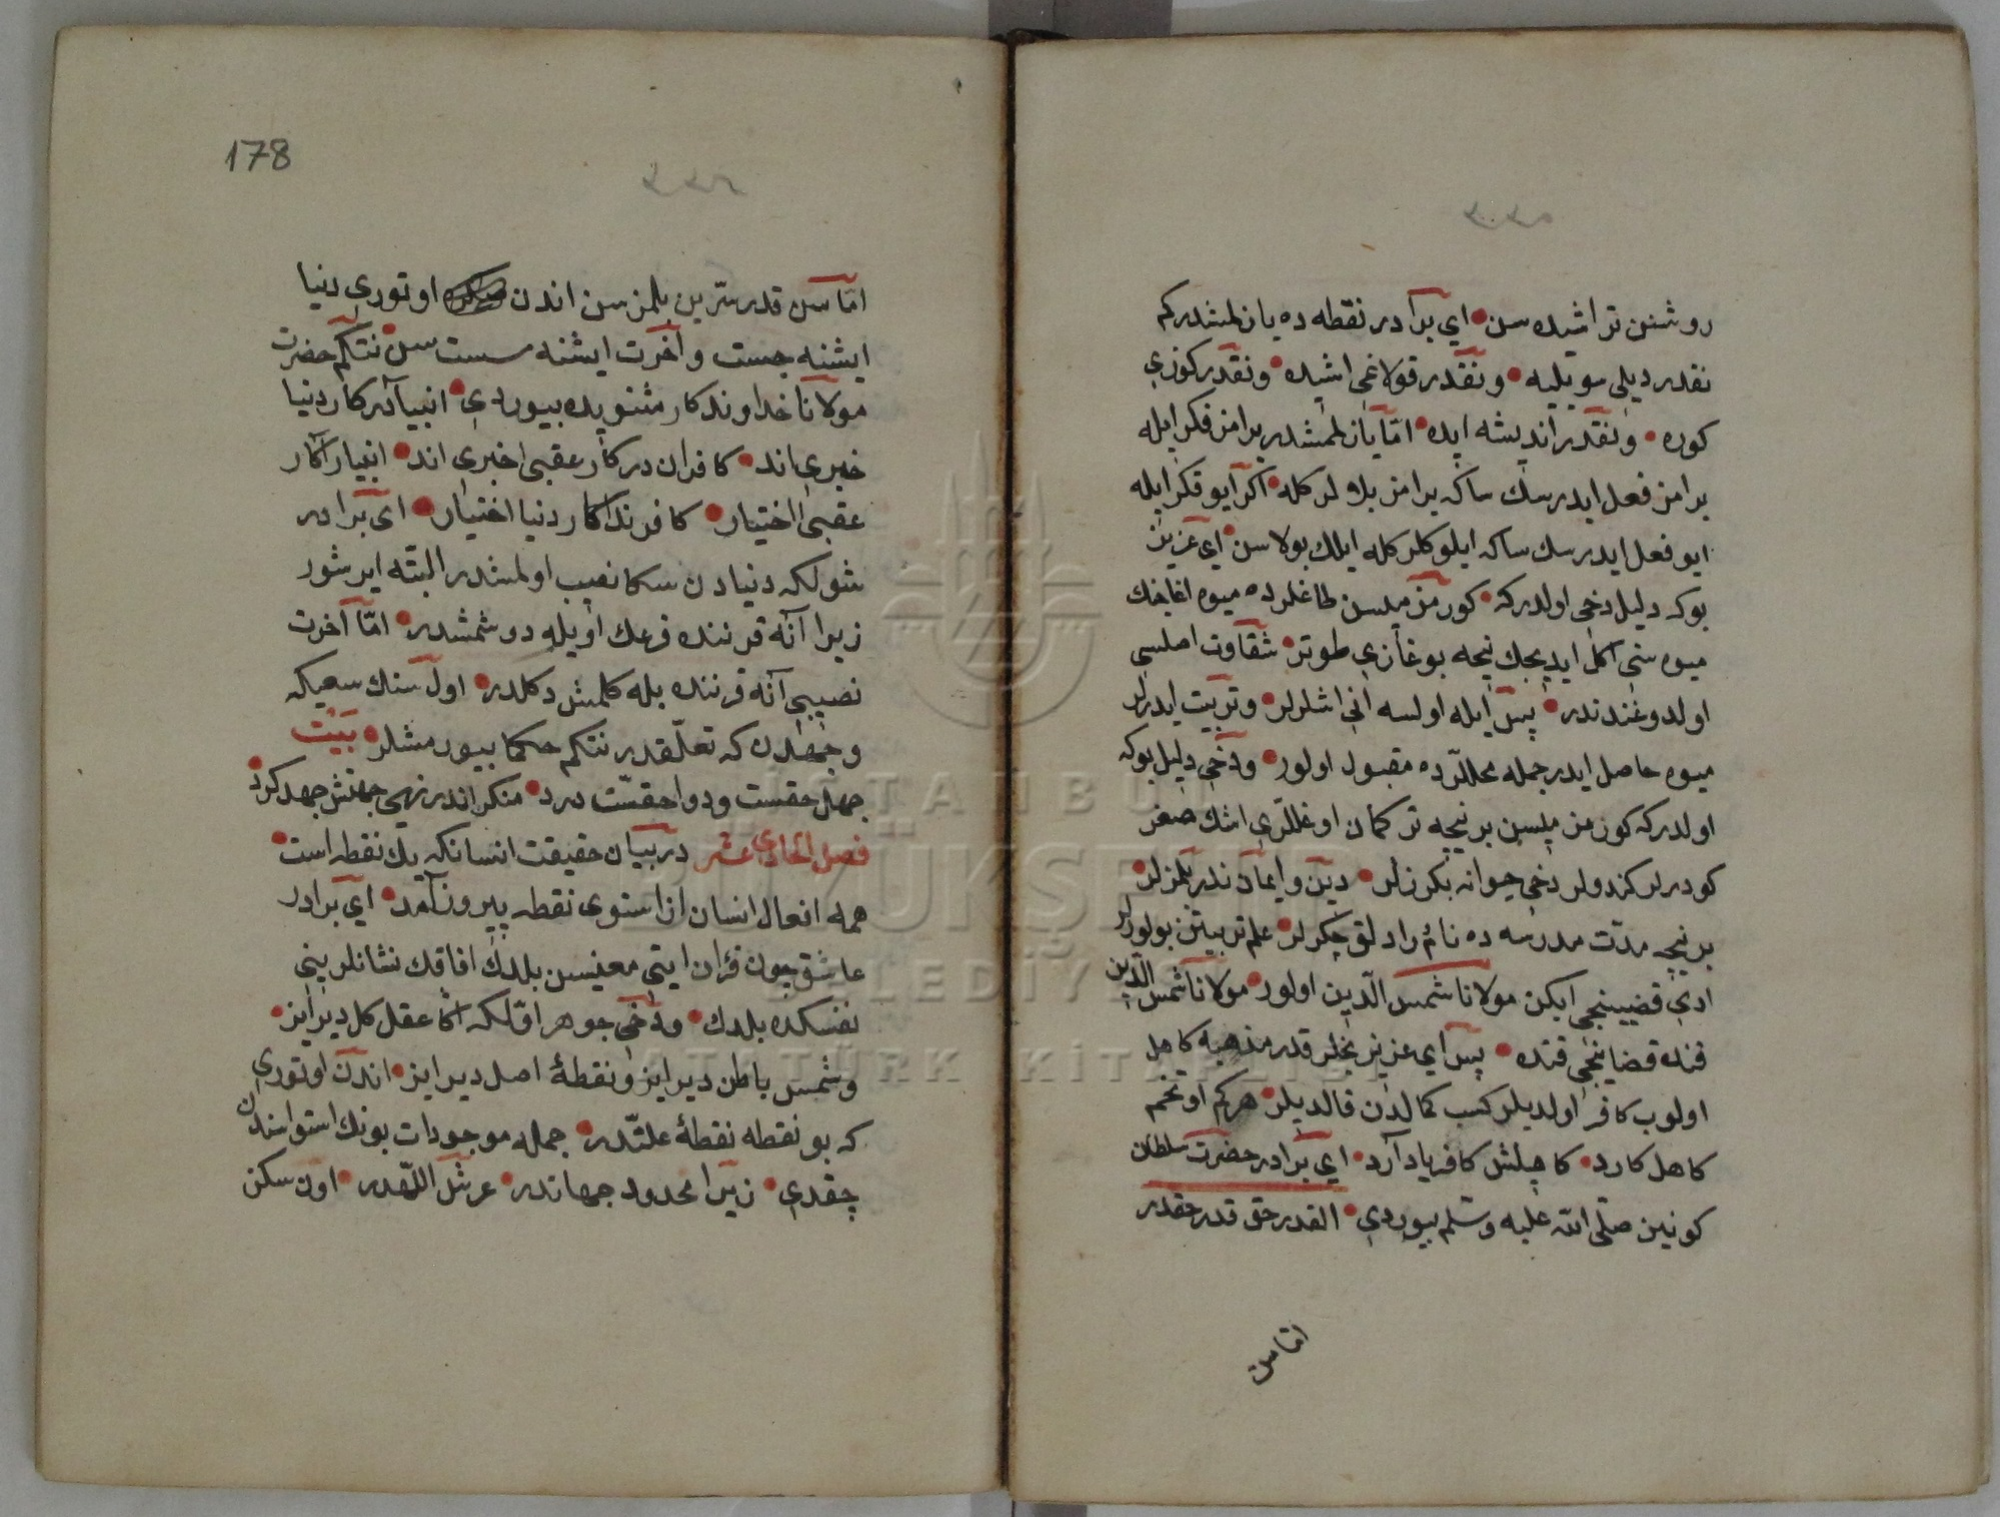 روشنن تراشیده سن • ای برادر نقطه ده یازلمشدرکم
نقدر دیلی سویلیه • و نقدر قولاغی اشیده • و نقدر کوزی
کوره • و نقدر اندیشه ایده • امّا یازلمشدر یرامز فکر ایله
یرامز فعل ایدرسك ساکه یرامز بلاولر کله • اکر ایو فکر ایله
ایو فعل ایدرسك ساکه ایلوکلر کله ایلك بولاسن • ای عزیز
بوکه دلیل دخی اولدرکه • کورمزمیسن طاغلرده میوه اغاجنك
میوه سنی اکل ایدیجك نیجه بوغازی طوتر • شقاوت اصلسی
اولدوغندندر • پس ایله اولسه انی اشلرلر • و تربیت ایدرلر
میوه حاصل ایدر جمله محللّرده مقبول اولور • و دخی دلیل بوکه
اولدرکه کورمزمیسن بر نیچه ترکمان اوغللری اشك صغر
کودرلر کندولر دخی حیوانه بکزرلر • دین و ایمان ندر بلمزلر
بر نیچه مدّت مدرسه ده نامرادلق چکرلر • علم تربیتن بولورلر
ادی قضیبنجی ایکن مولانا شمس الدّین اولور • مولانا شمس الدّین
قنده قضیبنجی قنده • پس ای عزیز نچلر قدر مذهبه کاهل
اولوب کافر اولدیلر کسب کمالدن قالدیلر • هرکم او تخم
کاهل کارد • کاهلش کافر یاد آرد • ای برادر حضرت سلطان
کونین صلّی اللّه علیه وسّلم بیوردی • القدر حق قدر حقدر
امّا سن
178
امّا سن قدر سرّین بلمزسن اندن اوتوری دنیا
ایشنه چست و آخرت ایشنه سست سن • نتکم حضرت
مولانا خداوندکار مثنویده بیوردی • انبیا در کار دنیا
جبری اند • کافران در کار عقبی جبری اند • انبیارا کار
عقبی اختیار • کافرانرا کار دنیا اختیار • ای برادر
شولکه دنیادن سکا نصیب اولمشدر البته ایرشور
زیرا آنه قرننده قرعك اویله دوشمشدر • امّا آخرت
نصیبی آنه قرننده بله کلمش دکلدر • اول سنك سعیکه
و جهدن که تعلّقدر نتکم حکما بیورمشلر • بَیْت
جهد حقست و دوا حقسّت درد • منکر اندر نهی جهدش جهد کرد
فصل الحادی عشر در بیان حقیقت انسانکه یك نقطه است •
همه افعال انسان از استوی نقطه بیرون آمد • ای برادر
عاشق چون قرٰان ایتی معنیسن بلدك افاقك نشانلرینی
نفسکده بلدك • و دخی جوهر اوّلکه اکا عقل کل دیرایز •
و شمس باطن دیرایز و نقطهٔ اصل دیرایز • اندن اوتوری
که بو نقطه نقطهٔ علتّدر • جمله موجودات بونك استواسندن
چقدی • زیرا محدود جهاتدر • عرشُ اللّهدر • اون سکز